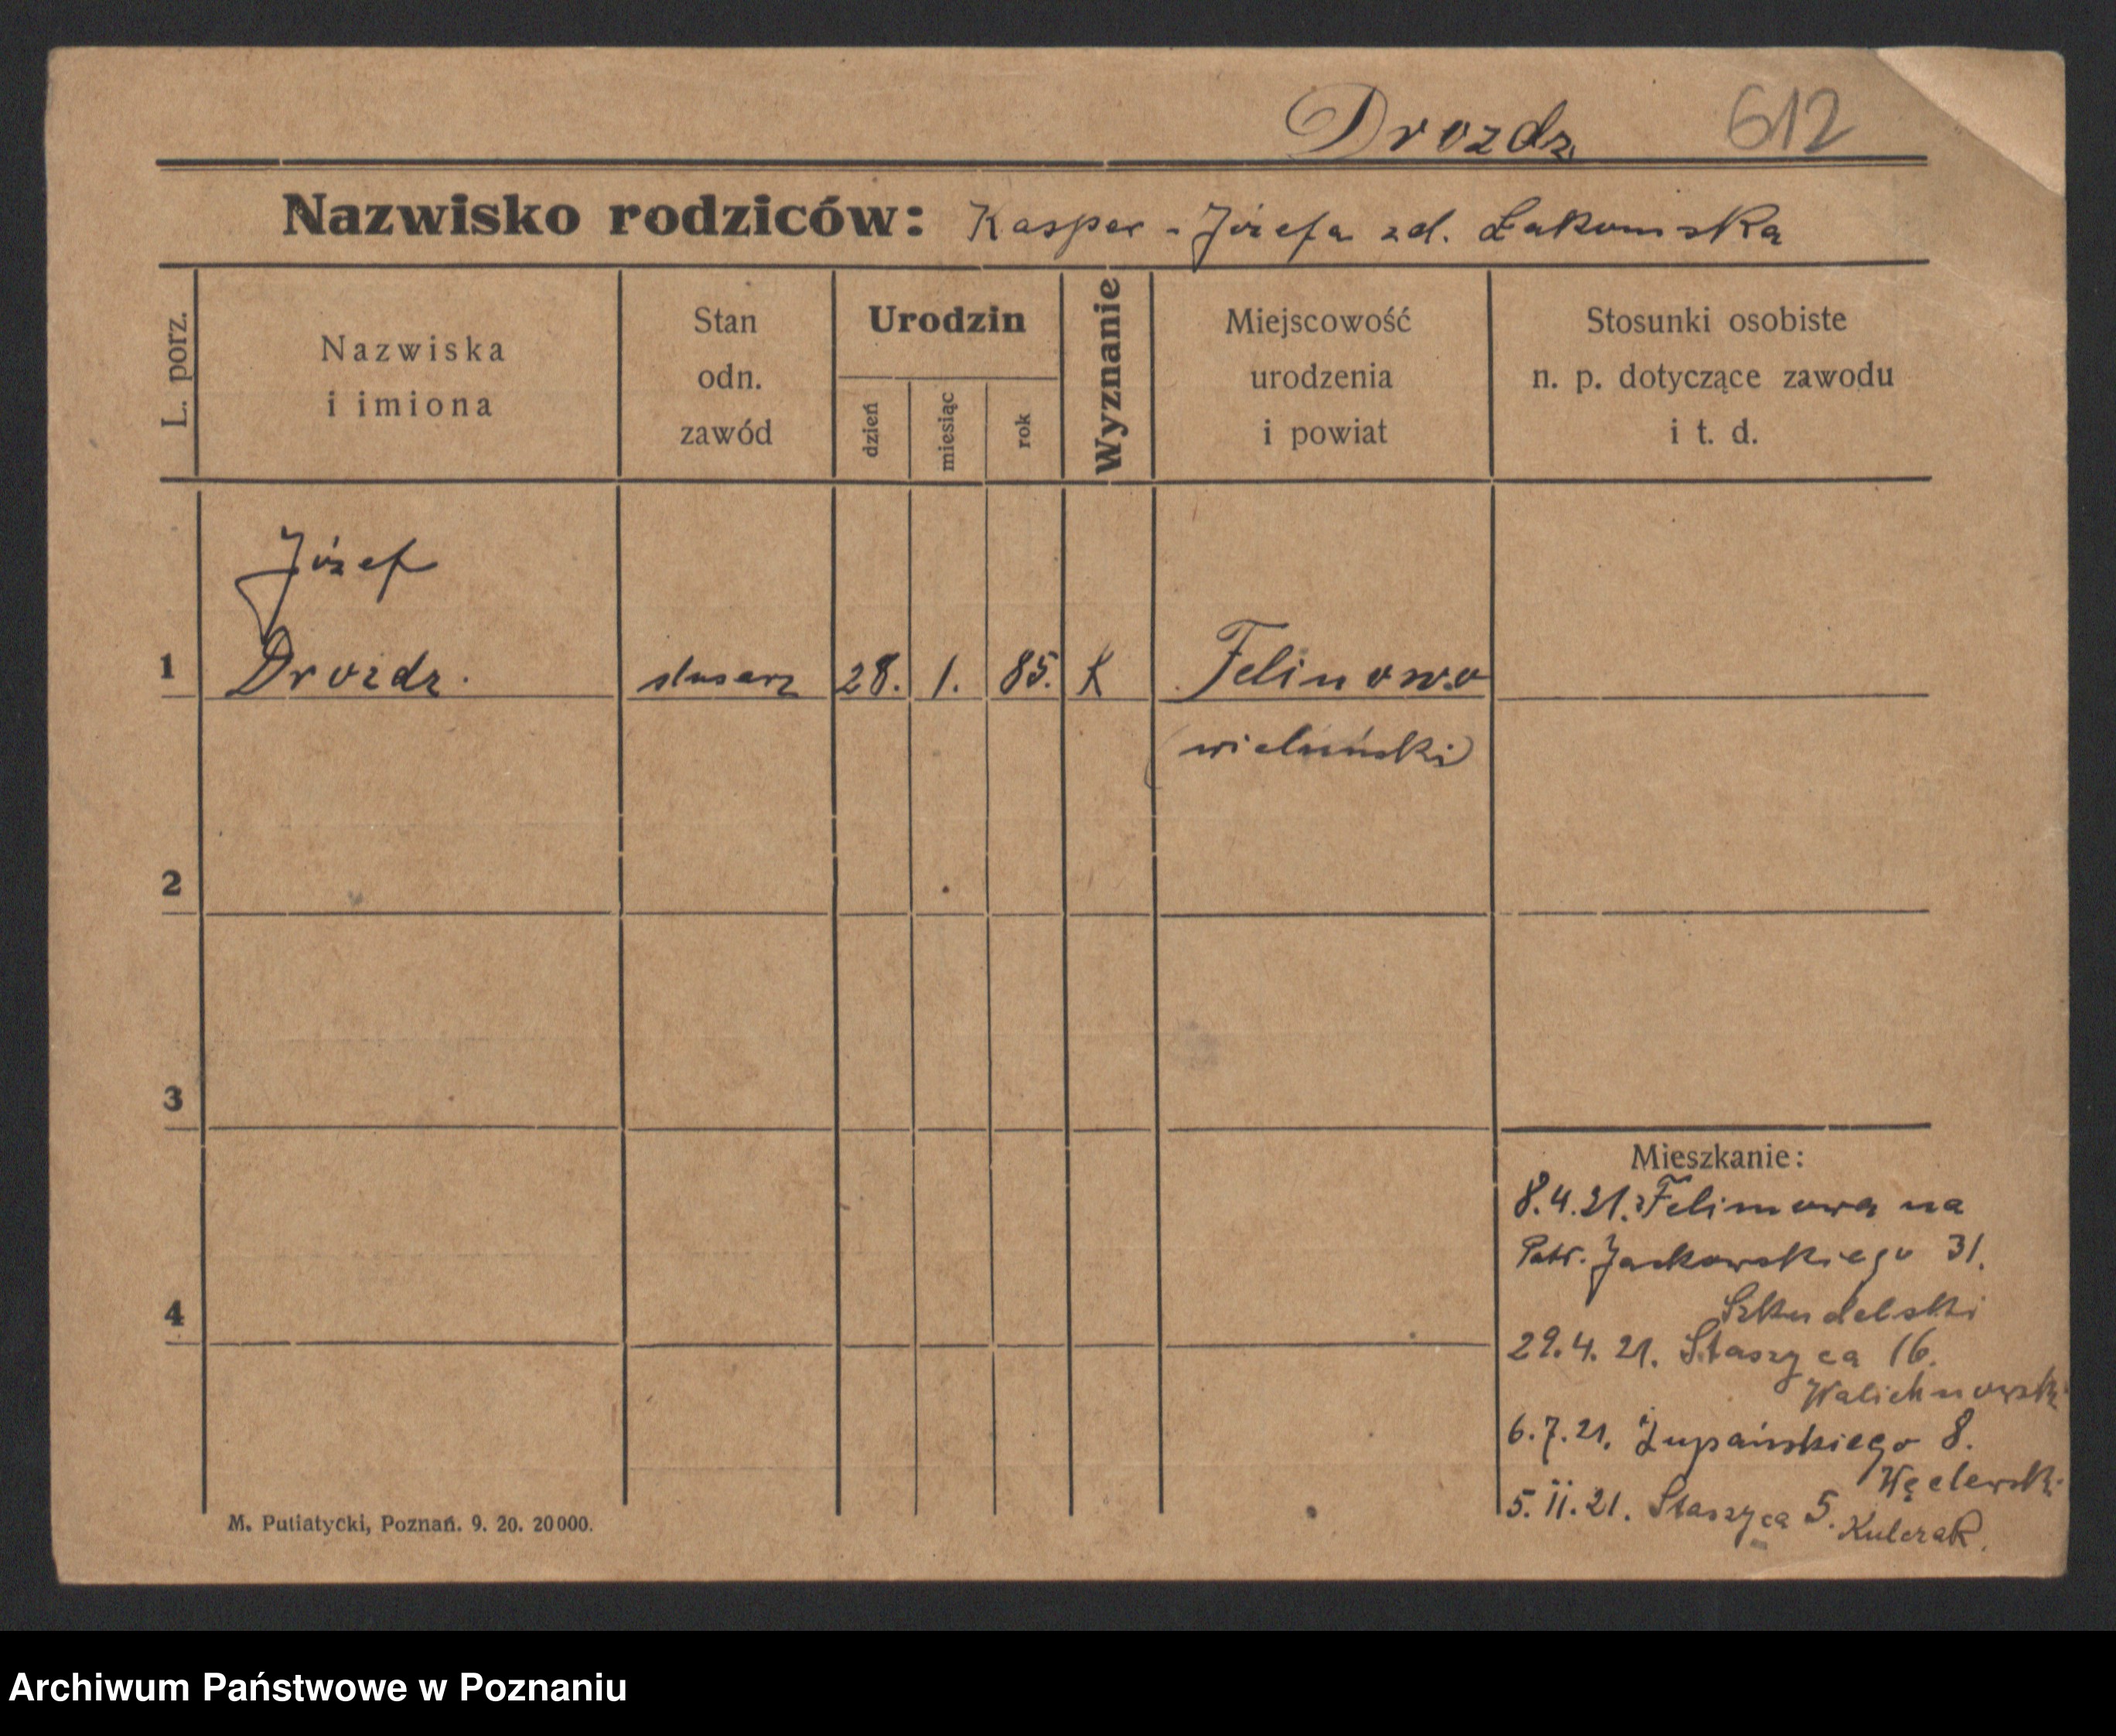 Drozdz
612
Nazwisko rodziców: Kasper - Józefa zd. Łakomska
L. porz.
Nazwiska
i imiona
Stan
odn.
zawód
Urodzin
dzień
miesiąc
rok
Wyznanie
Miejscowość
urodzenia
i powiat
Stosunki osobiste
n. p. dotyczące zawodu
i t. d.
Józef
1 Drozdz. slusarz 28. 1. 85. K Felinowo
(wieluński)
2
3
4
Mieszkanie:
8.4.21. z Felinowa na
Patr. Jackowskiego 31.
Szkudelski
29.4.21. Staszyca 16.
Walichnowski
6.7.21. Żupańskiego 8.
Węclewski
5.11.21. Staszyca 5. Kulczak.
M. Putiatycki, Poznań. 9. 20. 20000.
Archiwum Państwowe w Poznaniu